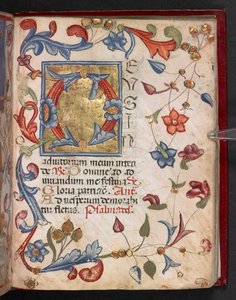 D
EVS IN
adiutorium meum inten
de R Domine ad ad
iuuandum me festina
Gloria patri Ant
Ad vesperum demorabi
tur fletus. Psalmus